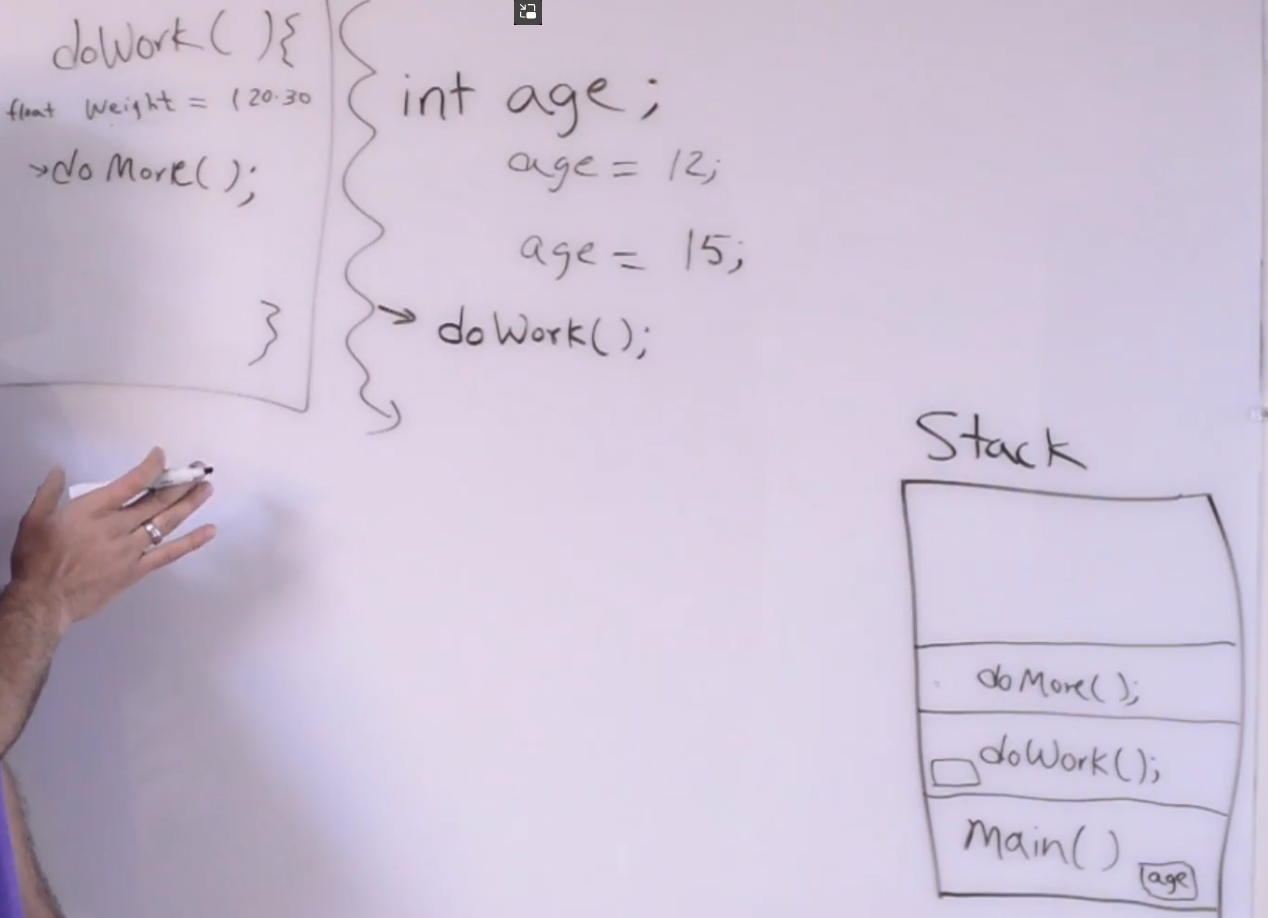 doWork( ){
float Weight = 120.30
→doMore( );
}
int age ;
age = 12;
age = 15;
→ doWork( );
Stack
doMore( );
doWork( );
Main( )
age